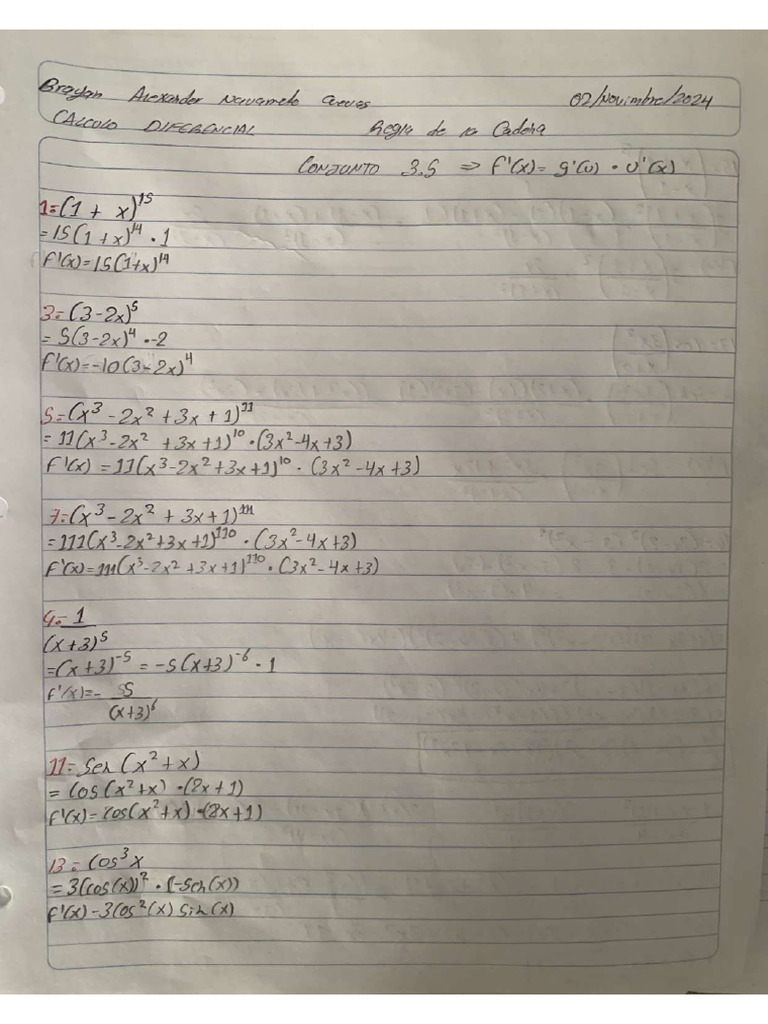 Brayan Alexander Navamelo Cuevas 02/Noviembre/2024
CALCULO DIFERENCIAL Regla de la Cadena
CONJUNTO 3.5 ⇒ f'(x)= g'(u) • u'(x)
1=(1 + x)¹⁵
=15(1+x)¹⁴ • 1
f'(x)=15(1+x)¹⁴
3=(3-2x)⁵
=5(3-2x)⁴ •-2
f'(x)=-10(3-2x)⁴
5=(x³-2x²+3x+1)¹¹
=11(x³-2x²+3x+1)¹⁰•(3x²-4x+3)
f'(x)=11(x³-2x²+3x+1)¹⁰•(3x²-4x+3)
7=(x³-2x²+3x+1)¹¹¹
=111(x³-2x²+3x+1)¹¹⁰•(3x²-4x+3)
f'(x)=111(x³-2x²+3x+1)¹¹⁰•(3x²-4x+3)
9= 1
(x+3)⁵
=(x+3)⁻⁵ = -5(x+3)⁻⁶ • 1
f'(x)=- 5
(x+3)⁶
11= Sen(x²+x)
= Cos(x²+x) •(2x+1)
f'(x)= Cos(x²+x) •(2x+1)
13= Cos³x
=3(cos(x))² • (-Sen(x))
f'(x)-3Cos²(x) Sin(x)